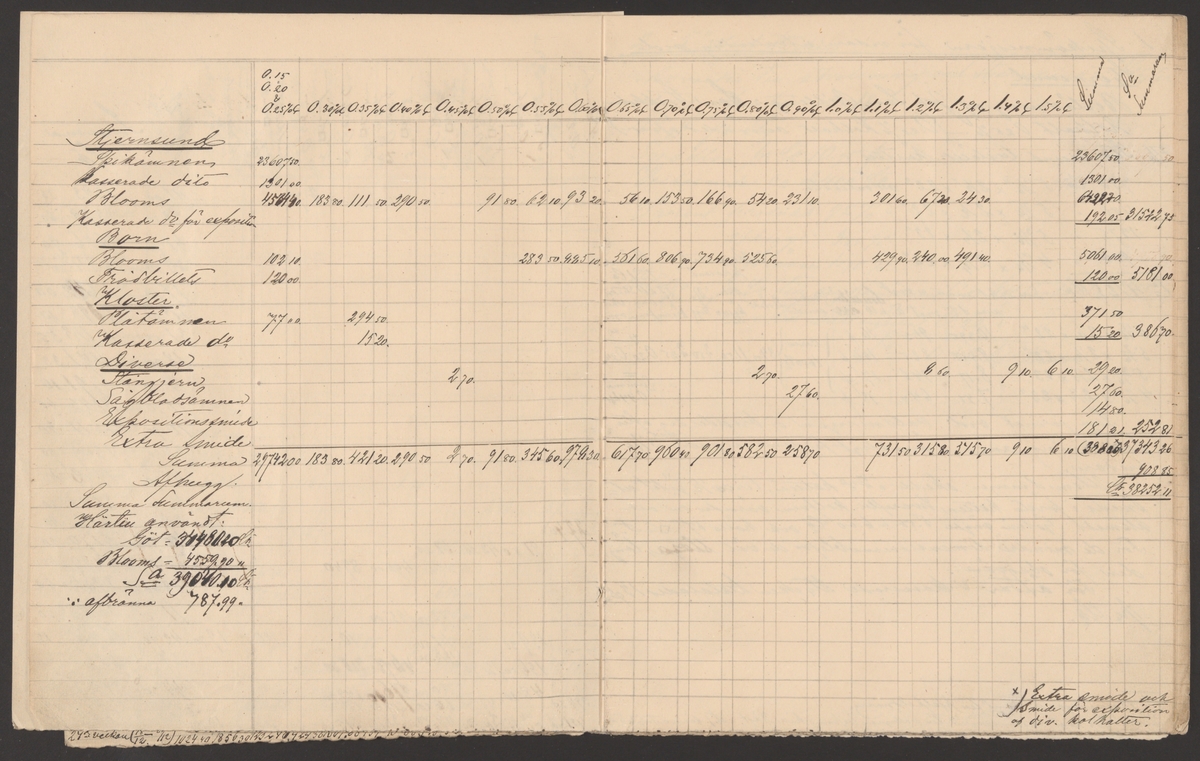 0.15
0.20
0.25%C 0.30%C 0.35%C 0.40%C 0.45%C 0.50%C 0.55%C 0.60%C 0.65%C 0.70%C 0.75%C 0.80%C 0.90%C 1.0%C 1.1%C 1.2%C 1.3%C 1.4%C 1.5%C Summa Sa Summarum
Stjernsund
23607 50. 23607 50.
Kasserade dito 1301 00. 1301 00.
Blooms 183 80 111 50 290 50 91 80 62 10 93 20 56 10 153 50 166 90 54 20 231 10 301 60 24 30
Kasserad do för exposition 192 05 31542 75
Born
Blooms 102 10 283 50 485 10 561 60 806 90 734 90 525 60 429 90 240 00 491 40 5061 00
120 00 120 00 5181 00
Kloster
Blåtämnen 77 00 294 50 371 50
Kasserade do 15 20. 15 20 386 70
Diverse
Stångjern 2 70. 2 70. 8 60 9 10 6 10 29 20
Sågbladsämnen 27 60 27 60
Expositionssmide 14 80
Extra smide 181 21 252 81
Summa 29742 00 183 80 421 20 290 50 2 70 91 80 345 60 617 70 960 40 901 80 582 50 258 70 731 50 315 80 515 70 9 10 6 10 37343 26
Afhugg. 908 85
Summa Summarum. Sa 38252 11
Härtill användt:
Göt =
Blooms = 4559.90 "
Sa
∴ afbränna 787.99 "
x) Extra smide och
smide för exposition
af div. kolhalter.